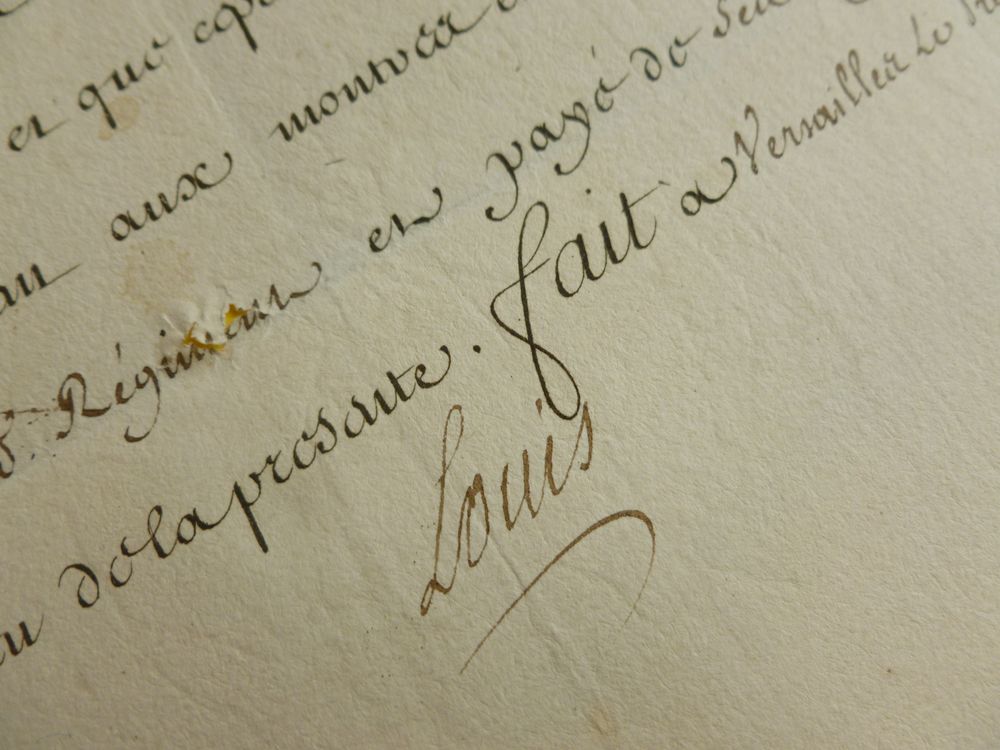 et que
an aux montrés
Régiment en payé de
eu de la presante. fait a Versailles Le
Louis